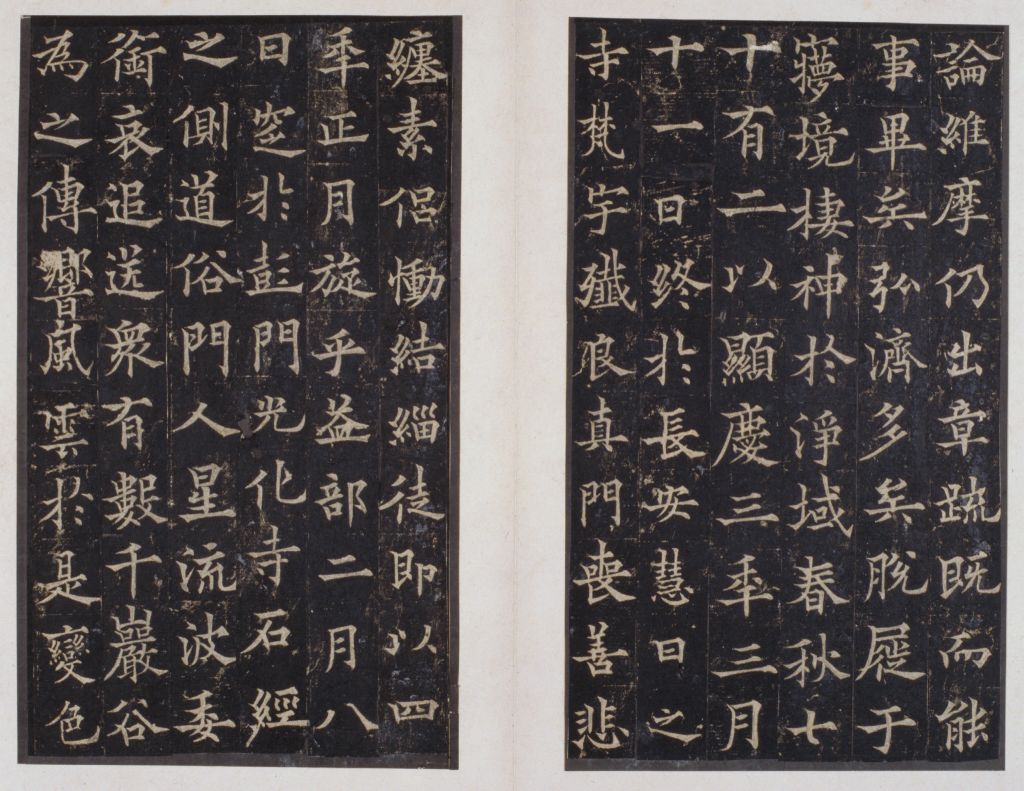 論維摩仍出章䟽既而能
事畢矣弘濟多矣脫屣于
寢境棲神於淨域春秋七
十有二以顯慶三秊三月
十一日終於長安慧日之
寺梵宇殲良真門喪善悲
纏素侶慟結緇徒即以四
秊正月旋乎益部二月八
日窆於彭門光化寺石經
之側道俗門人星流波委
銜哀追送衆有數千巖谷
為之傳響風雲於是變色